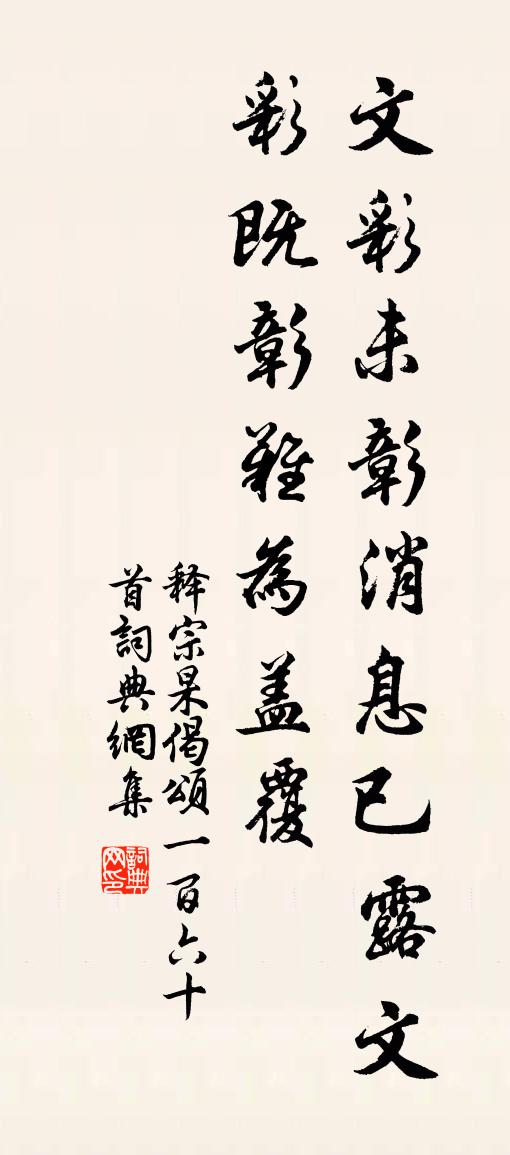 文彩未彰消息已露文
彩既彰難為盖覆
释宗杲偈頌一百六十
首詞典網集
詞典网印